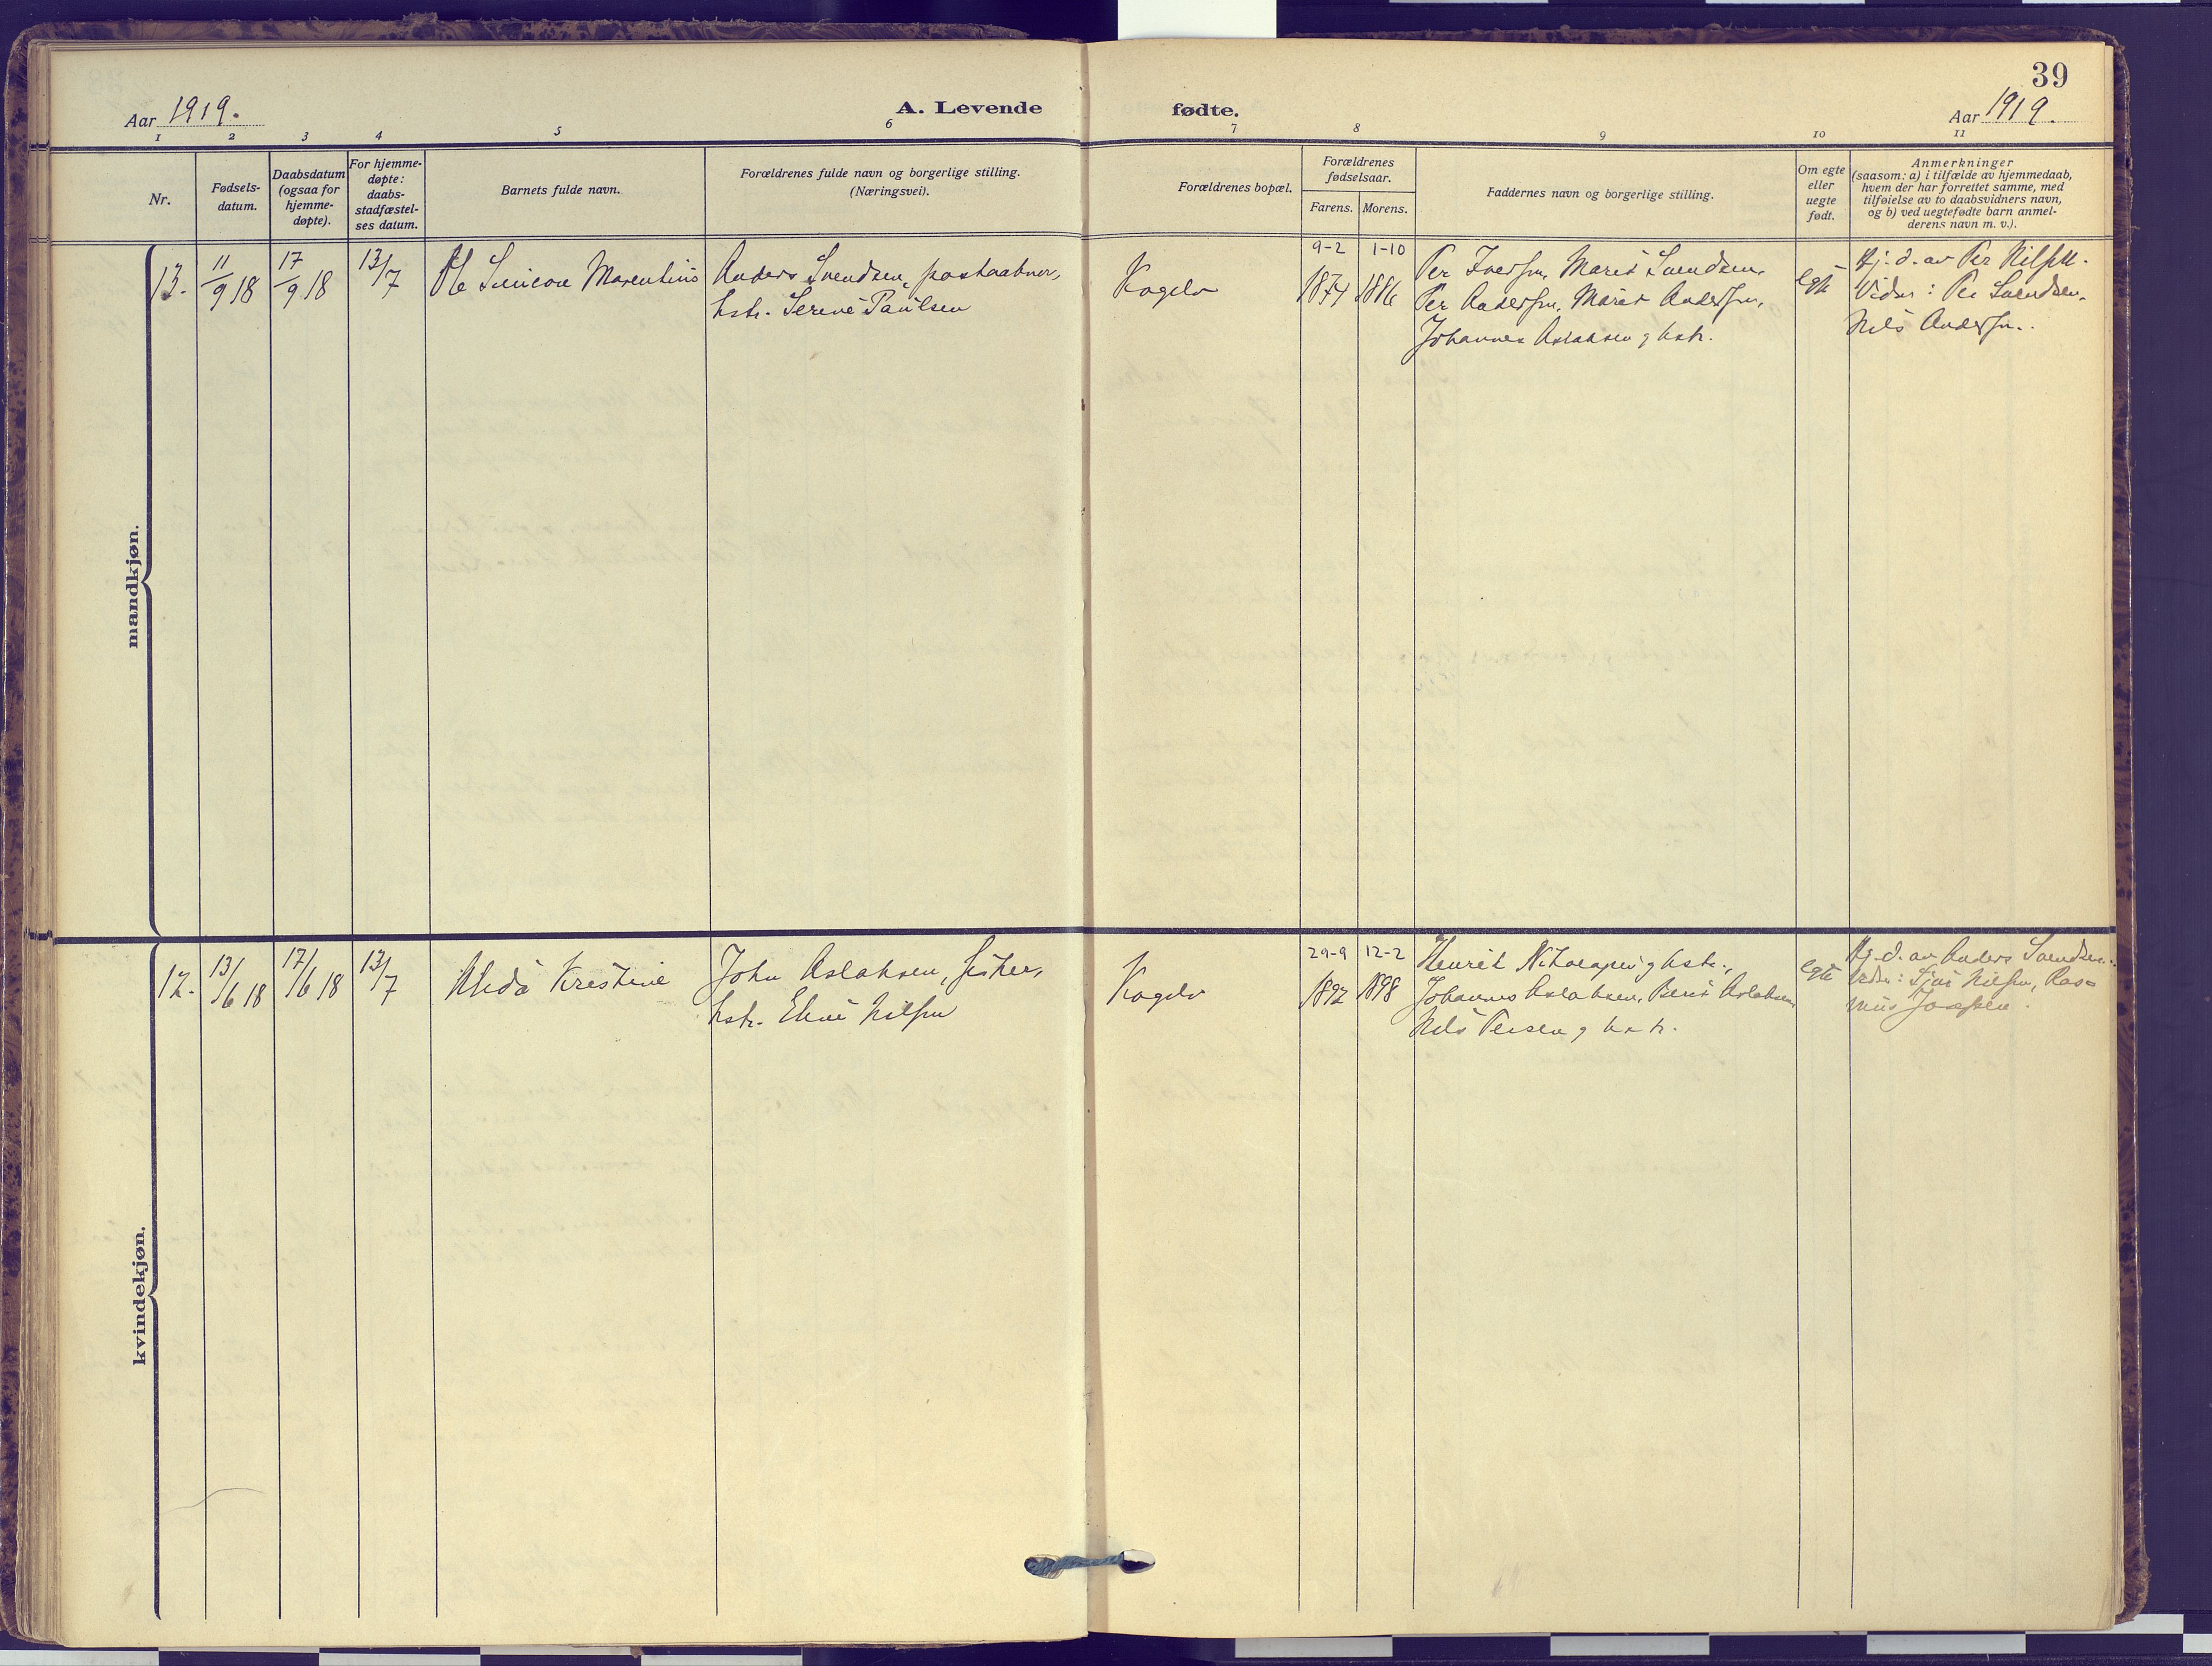 39
Aar 1919.
A. Levende fødte.
Aar 1919.
1 2 3 4 5 6 7 8 9 10 11
Nr.
Fødsels-
datum.
Daabsdatum
(ogsaa for
hjemme-
døpte).
For hjemme-
døpte:
daabs-
stadfæstel-
ses datum.
Barnets fulde navn.
Forældrenes fulde navn og borgerlige stilling.
(Næringsvei).
Forældrenes bopæl.
Forældrenes
fødselsaar.
Farens. Morens.
Faddernes navn og borgerlige stilling.
Om egte
eller
uegte
født.
Anmerkninger
(saasom: a) i tilfælde av hjemmedaab,
hvem der har forrettet samme, med
tilføielse av to daabsvidners navn,
og b) ved uegtefødte barn anmel-
derens navn m. v.).
mandkjøn.
13.
11/9 18
17/9 18
13/7
Ole Marentius
Anders Svendsen, postaabner,
hstr. Serine Paulsen
Kogelv
9-2
1874
1-10
1886
Per Iversen, Marit Svendsen,
Per Andersen, Marit Andersen,
Johannes Aslaksen g hstr.
egte
Hj. d. av Per Nilsen.
Vidner: Per Svendsen,
Nils Andersen.
kvindekjøn.
12.
13/6 18
17/6 18
13/7
Alida Kristine
John Aslaksen, fisker,
hstr. Eline Nilsen
Kogelv
29-9
1892
12-2
1898
Henrik g hstr.,
Johannes Aslaksen, Berit Aslaksen,
Nils Persen g hstr.
egte
Hj. d. av Anders Svendsen.
Vidn: Nilsen, Ras=
mus Josefsen.